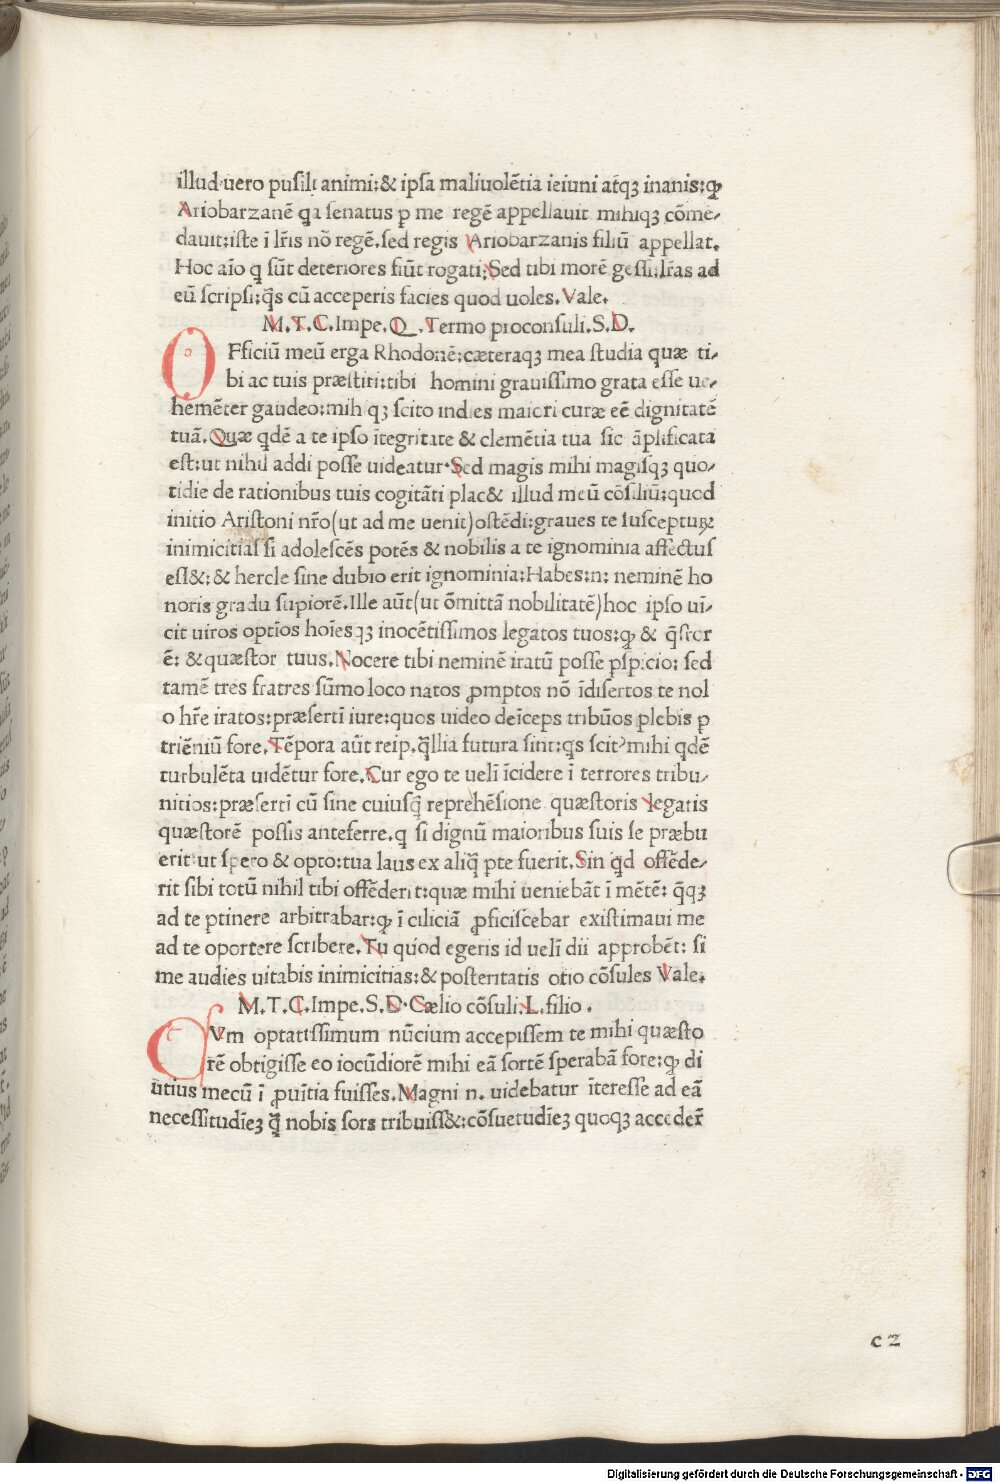 illud uero pusilli animi:& ipsa maliuolētia ieiuni atqꝫ inanis:ꝙ
Ariobarzanē qa senatus p me regē appellauit mihiqꝫ cōme-
dauit:iste ī lr̄is nō regē.sed regis Ariobarzanis filiū appellat.
Hoc aīo q̄ sūt deteriores fiūt rogati:Sed tibi morē gessi.lr̄as ad
eū scripsi:q̄s cū acceperis facies quod uoles.Vale.
M.T.C.Impe.Q.Termo proconsuli.S.D.
OFficiū meū erga Rhodonē:cæteraqꝫ mea studia quæ ti-
bi ac tuis præstiti:tibi homini grauissimo grata esse ue-
hemēter gaudeo:mih qꝫ scito indies maiori curæ eē dignitatē
tuā.Quæ qdē a te ipso ītegritate & clemētia tua sic āplificata
est:ut nihil addi posse uideatur.Sed magis mihi magisqꝫ quo-
tidie de rationibus tuis cogitāti plac& illud meū cōsiliū:quod
initio Aristoni nr̄o(ut ad me uenit)ostēdi:graues te susceptuꝝ
inimicitias si adolescēs potēs & nobilis a te ignominia affectus
ess&:& hercle sine dubio erit ignominia:Habes:n: neminē ho
noris gradu supiorē.Ille aūt(ut ōmittā nobilitatē)hoc ipso uī-
cit uiros optīos hoīesqꝫ inocētissimos legatos tuos:ꝙ & q̄stor
ē: & quæstor tuus.Nocere tibi neminē iratū posse pspicio: sed
tamē tres fratres sūmo loco natos ꝓmptos nō īdisertos te nol
o hr̄e iratos:præsertī iure:quos uideo deīceps tribūos plebis p
triēniū fore.Tēpora aūt reip.q̄llia futura sint:q̄s scit?mihi qdē
turbulēta uidētur fore.Cur ego te uelī īcidere ī terrores tribu-
nitios:præsertī cū sine cuiusq̄ reprehēsione quæstoris legatis
quæstorē possis anteferre.q si dignū maioribus suis se præbu
erit:ut spero & opto:tua laus ex aliq̄ pte fuerit.Sin qd offēde-
rit sibi totū nihil tibi offēderit:quæ mihi ueniebāt ī mētē: q̄qꝫ
ad te ptinere arbitrabar:ꝙ ī ciliciā ꝓficiscebar existimaui me
ad te oportere scribere.Tu quod egeris id uelī dii approbēt: si
me audies uitabis inimicitias:& posteritatis otio cōsules Vale.
M.T.C.Impe.S.D.Cælio cōsuli.L.filio.
CVm optatissimum nūcium accepissem te mihi quæsto
rē obtigisse eo iocūdiorē mihi eā sortē sperabā fore:ꝙ di
ūtius mecū ī ꝓuītia fuisses.Magni n. uidebatur īteresse ad eā
necessitudīeꝫ q̄ nobis sors tribuiss&:cōsuetudīeꝫ quoqꝫ acceder̄
c2
Digitalisierung gefördert durch die Deutsche Forschungsgemeinschaft - DFG